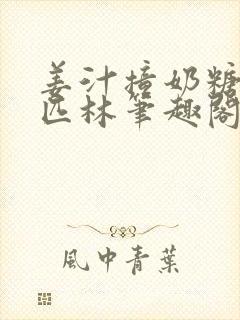 姜汁撞奶糖
匹林筆趣閣
風中青葉